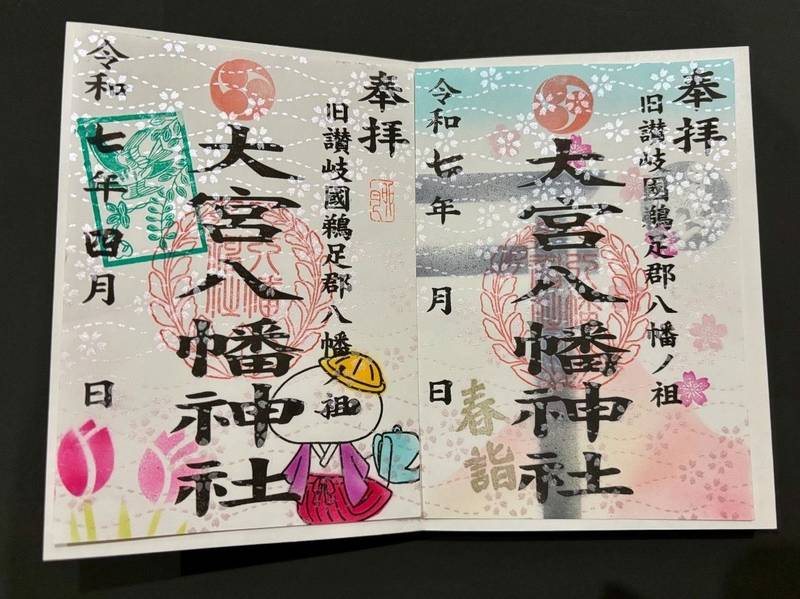 奉拝
旧讃岐國鵜足郡八幡ノ祖
大宮八幡神社
令和七年四月 日
奉拝
旧讃岐國鵜足郡八幡ノ祖
大宮八幡神社
春詣
令和七年 月 日